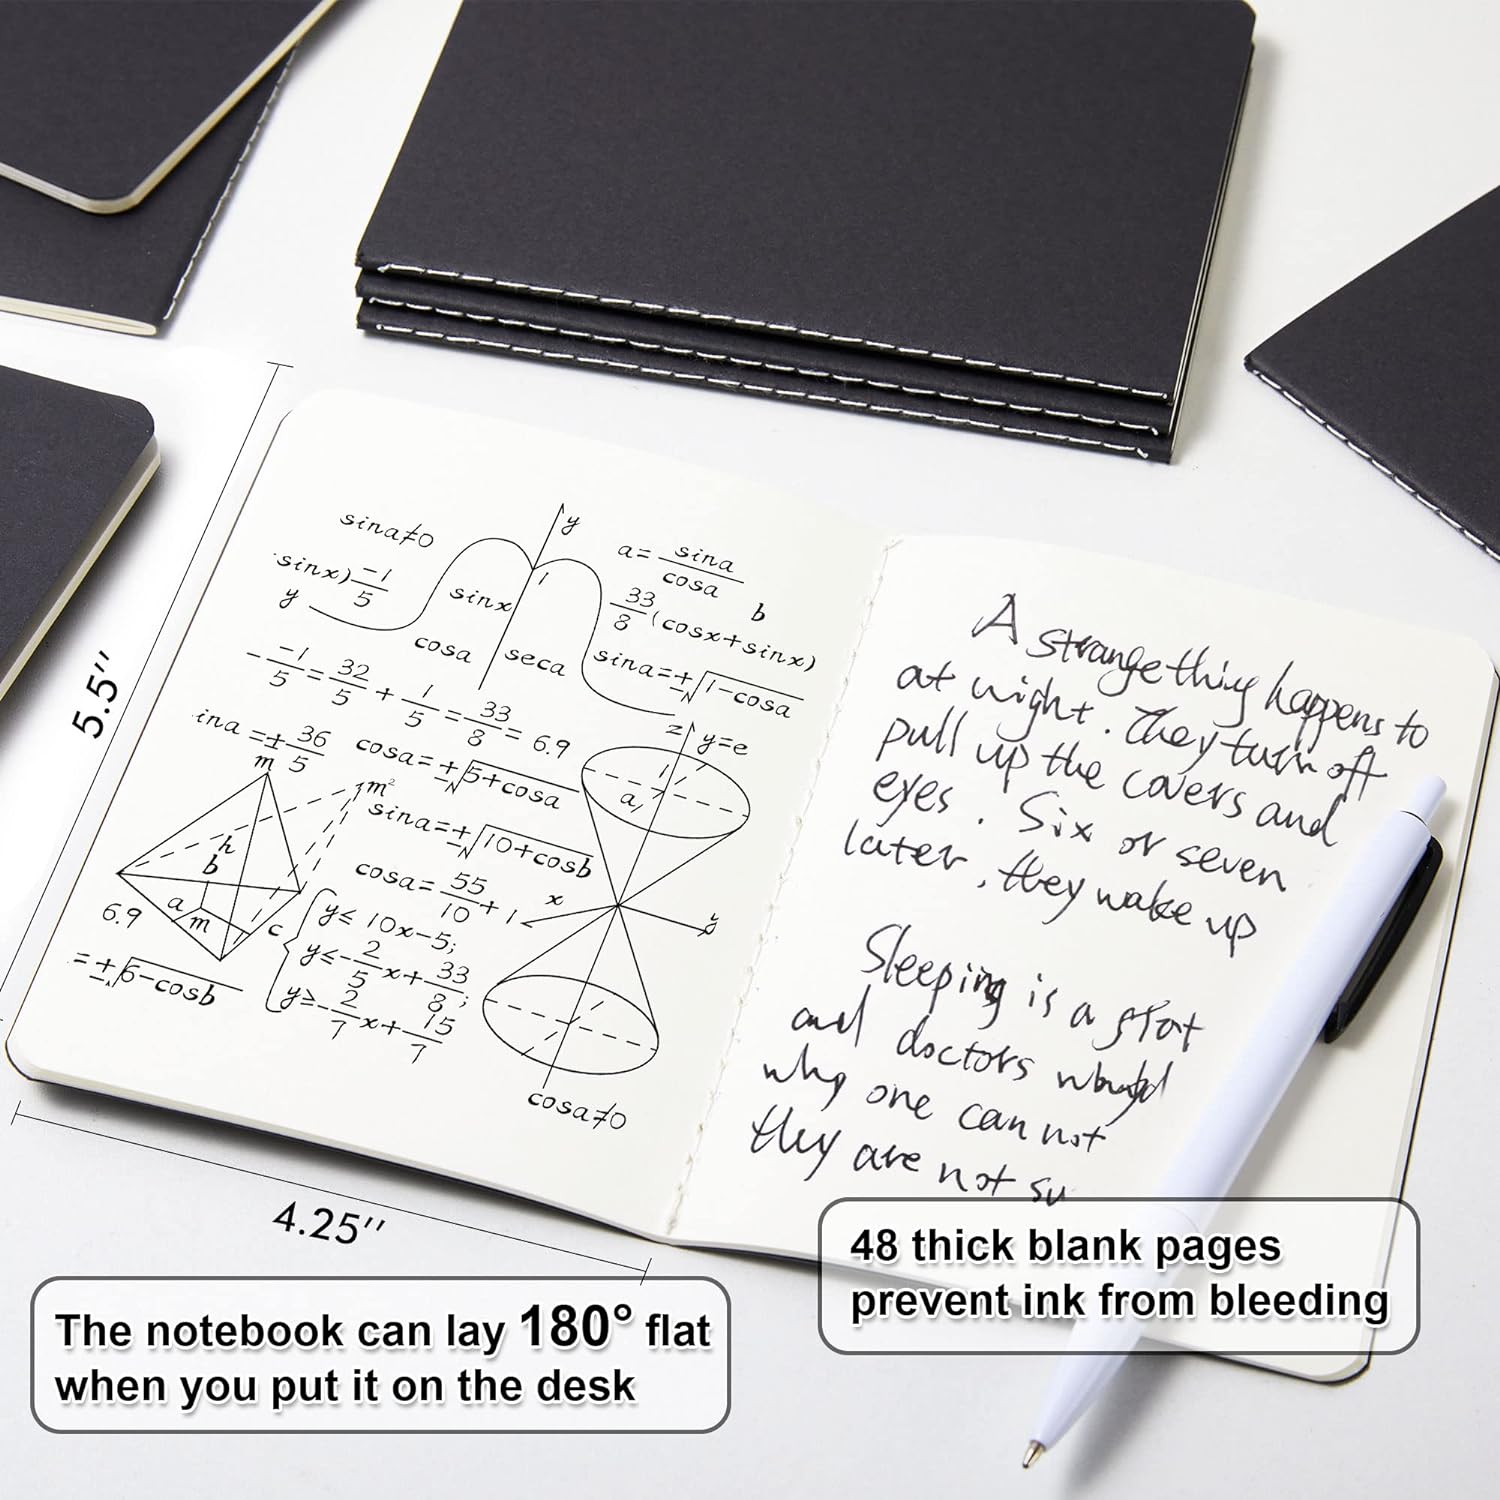 sina≠0
y
a= sina/cosa
sinx) -1/5
y
sinx
1
33/8 (cosx+sinx)
b
cosa
seca
sina=± √1-cosa
- -1/5 = 32/5 + 1/5 = 33/8 = 6.9
z
y=e
ina =± 36/5
cosa=± √5+cosa
a
m
m²
sina=± √10+cosb
h
b
cosa= 55/10 +1
x
y
a
m
c
6.9
y≤ 10x-5;
y≤- 2/5 x+ 33/8;
y≥- 2/7 x+ 15/7
=± √6-cosb
cosa≠0
A strange thing happens to
at night. They turn off
pull up the covers and
eyes. Six or seven
later, they wake up
Sleeping is a
and doctors
why one can not
they are not su
5.5''
4.25''
The notebook can lay 180° flat
when you put it on the desk
48 thick blank pages
prevent ink from bleeding